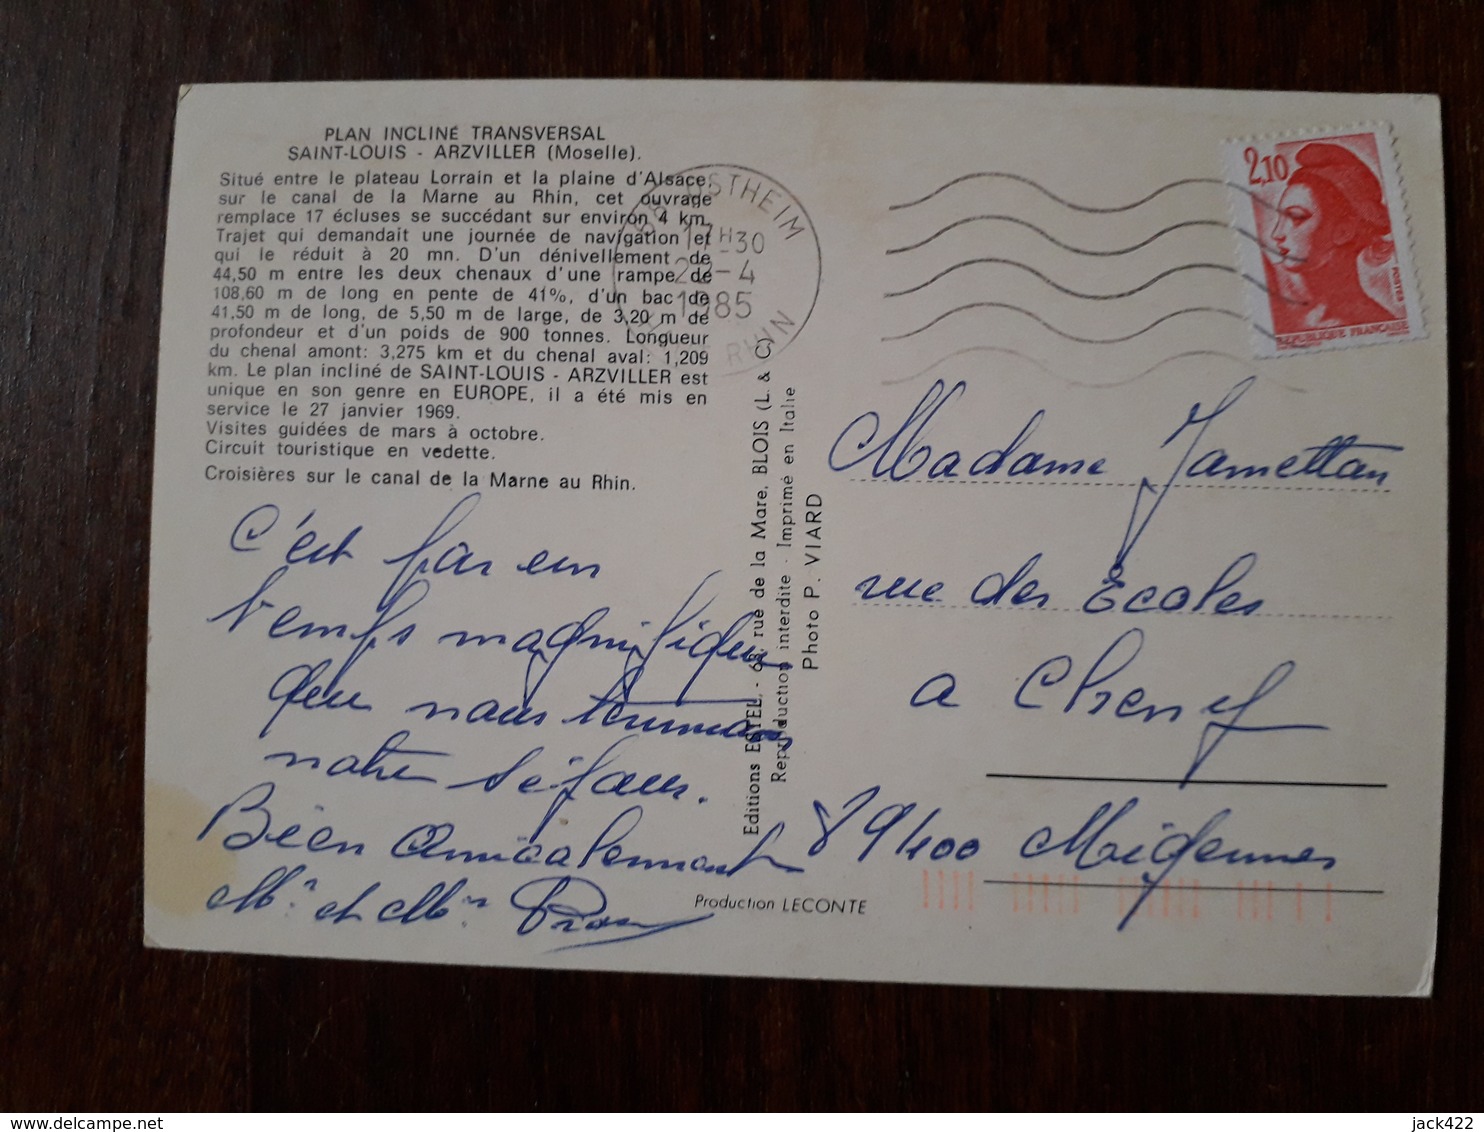 PLAN INCLINÉ TRANSVERSAL
SAINT-LOUIS - ARZVILLER (Moselle).
Situé entre le plateau Lorrain et la plaine d'Alsace,
sur le canal de la Marne au Rhin, cet ouvrage
remplace 17 écluses se succédant sur environ 4 km.
Trajet qui demandait une journée de navigation et
qui le réduit à 20 mn. D'un dénivellement de
44,50 m entre les deux chenaux d'une rampe de
108,60 m de long en pente de 41%, d'un bac de
41,50 m de long, de 5,50 m de large, de 3,20 m de
profondeur et d'un poids de 900 tonnes. Longueur
du chenal amont: 3,275 km et du chenal aval: 1,209
km. Le plan incliné de SAINT-LOUIS - ARZVILLER est
unique en son genre en EUROPE, il a été mis en
service le 27 janvier 1969.
Visites guidées de mars à octobre.
Circuit touristique en vedette.
Croisières sur le canal de la Marne au Rhin.
C'est par un
temps magnifique
que nous terminons
notre séjour.
Bien Amicalement
Mr et Mme
Editions ESTEL - 68, rue de la Mare, BLOIS (L. & C.)
Reproduction interdite - Imprimé en Italie
Photo P. VIARD
Production LECONTE
68 OSTHEIM
17H30
-4
1985
RHIN
2,10
POSTES
REPUBLIQUE FRANÇAISE
Madame Jamettan
rue des Ecoles
a Cheny
89400 Migennes
delcampe.net
jack422